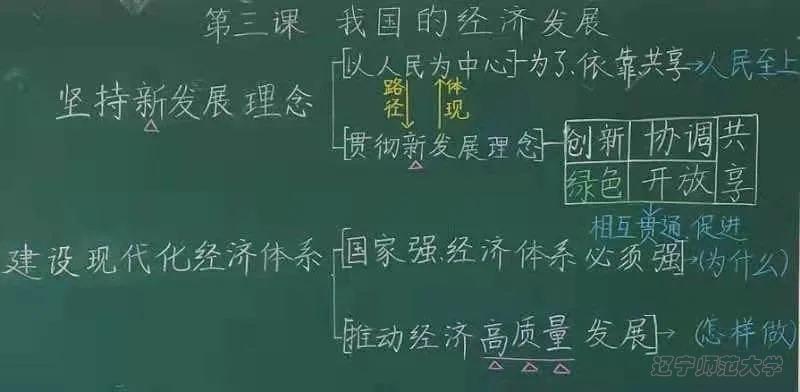 第三课 我国的经济发展
坚持新发展理念
[以人民为中心]→为了、依靠共享→人民至上
路径
体现
[贯彻新发展理念]
创新 协调 共享
绿色 开放
相互贯通、促进
建设现代化经济体系
[国家强,经济体系必须强]→(为什么)
[推动经济高质量发展]→(怎样做)
辽宁师范大学